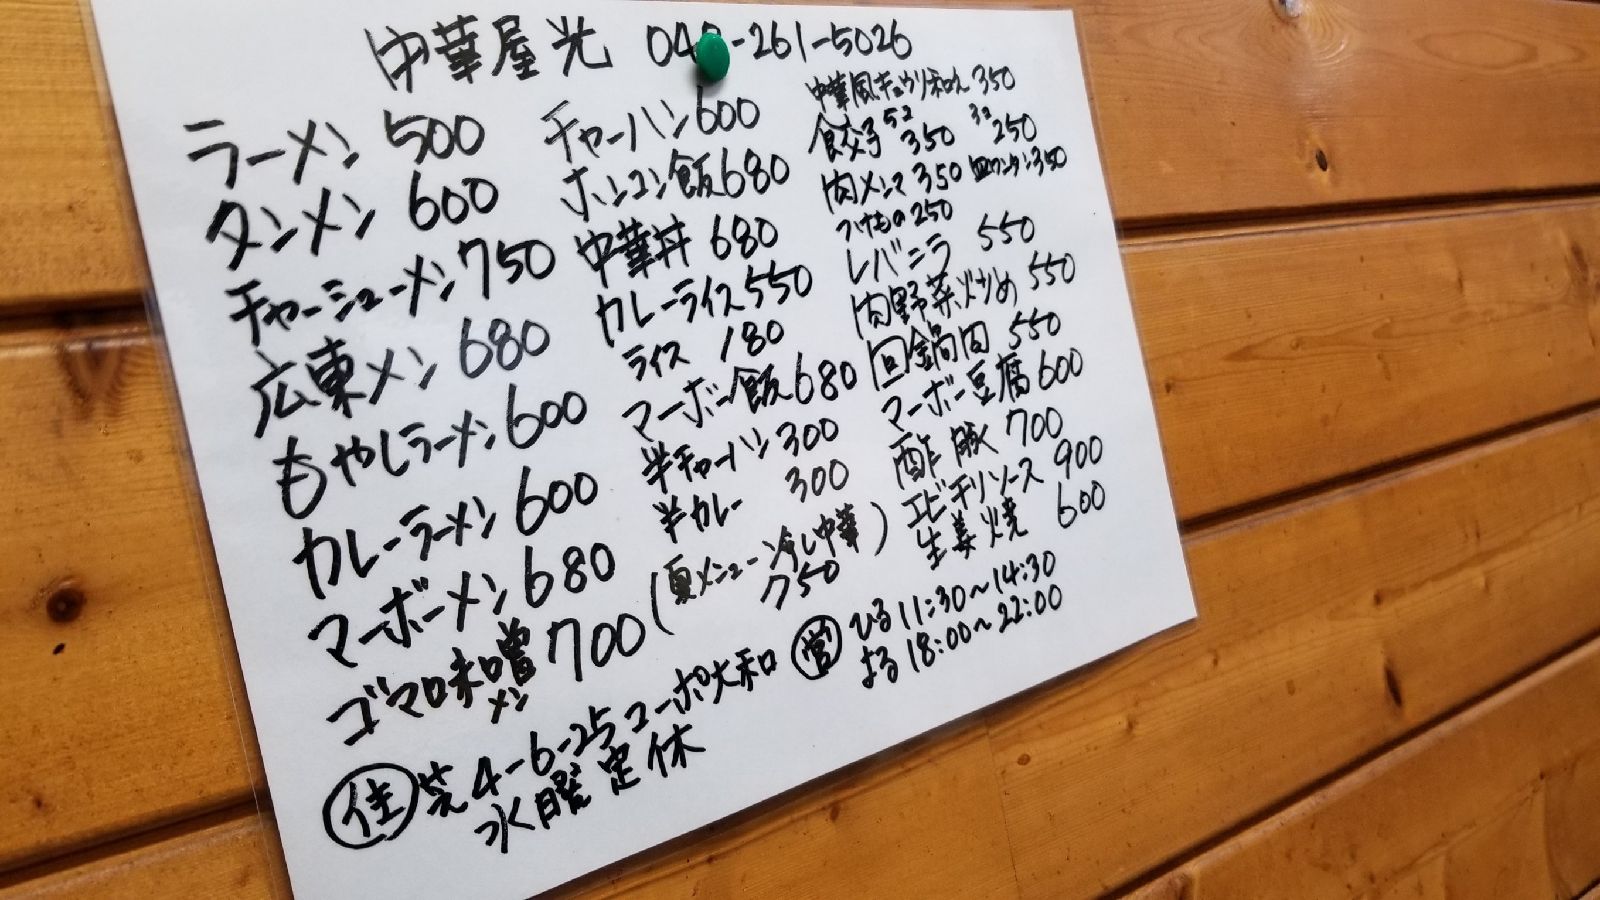 中華屋光 048-261-5026
ラーメン 500
タンメン 600
チャーシューメン 750
広東メン 680
もやしラーメン 600
カレーラーメン 600
マーボーメン 680
ゴマ味噌メン 700
チャーハン 600
ホンコン飯 680
中華丼 680
カレーライス 550
ライス 180
マーボー飯 680
半チャーハン 300
半カレー 300
(夏メニュー冷し中華 750)
中華風キュウリ和え 350
餃子 5コ 350 3コ 250
肉メンマ 350 皿ワンタン 350
つけもの 250
レバニラ 550
肉野菜炒め 550
回鍋肉 550
マーボー豆腐 600
酢豚 700
エビチリソース 900
生姜焼 600
住 芝4-6-25 コーポ大和
水曜定休
営 ひる 11:30〜14:30
よる 18:00〜22:00